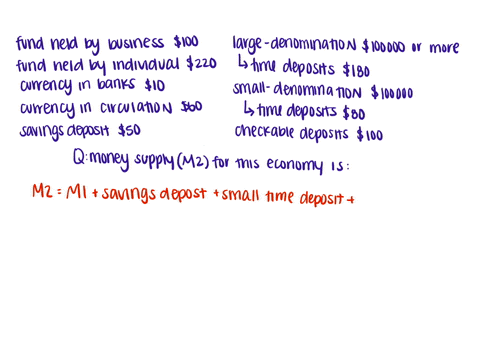 fund held by business $100
fund held by individual $220
currency in banks $10
currency in circulation $60
savings deposit $50
large-denomination $100000 or more
↳ time deposits $180
small-denomination $100000
↳ time deposits $80
checkable deposits $100
Q: money supply (M2) for this economy is:
M2 = M1 + savings depost + small time deposit +